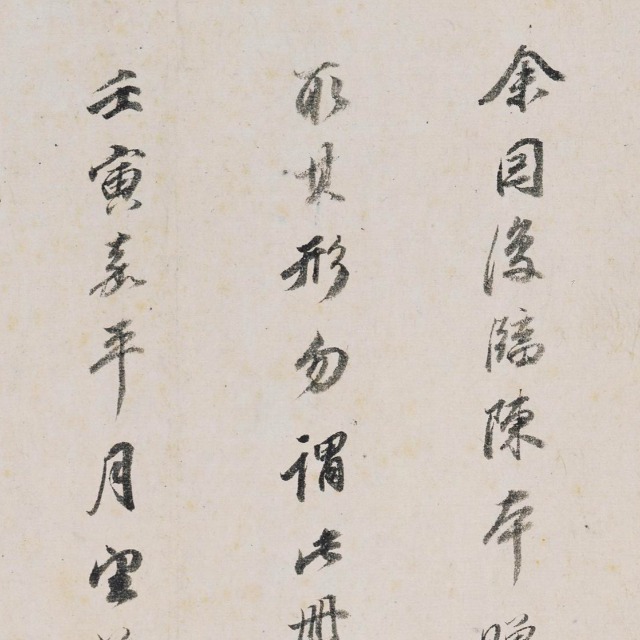 余因復臨陳本
取其形勿謂此冊
壬寅嘉平月望